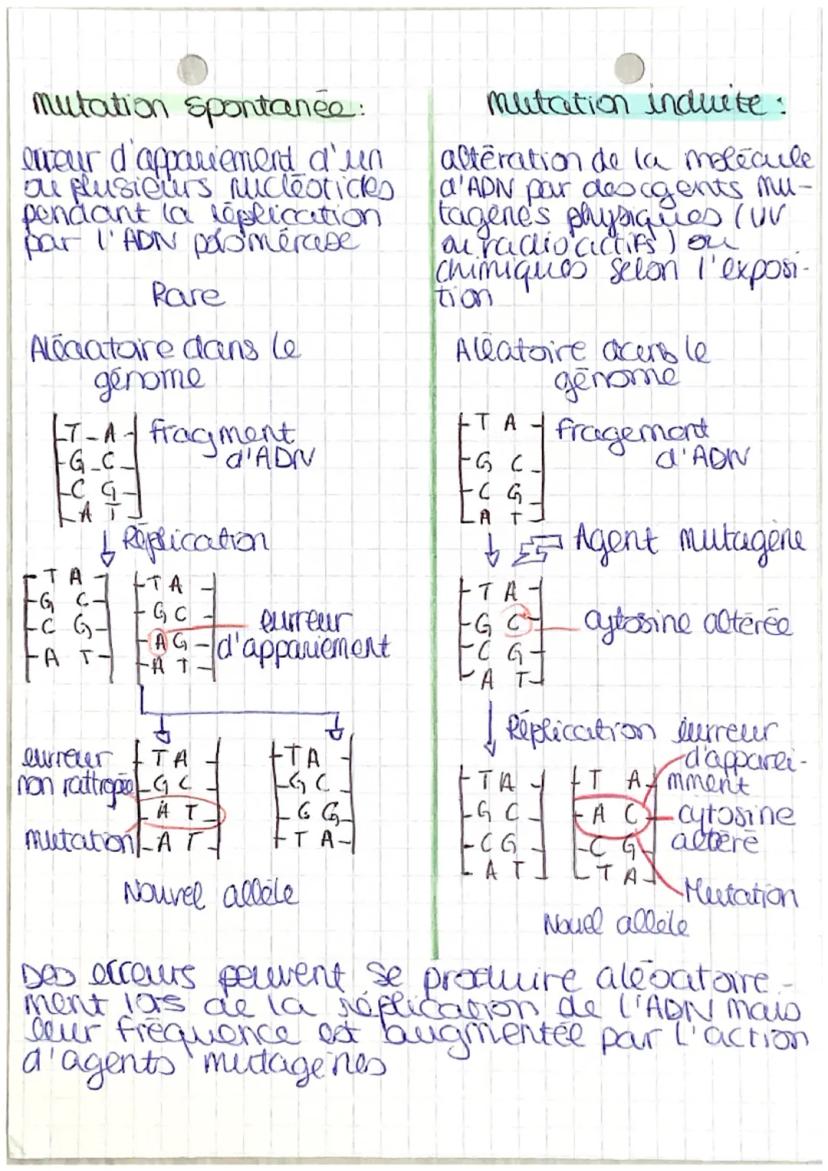 mutation spontanée:
erreur d'appariement d'un
ou plusieurs nucléotides
pendant la réplication
par l'ADN polomérase
Rare
Aléaatoire dans le
génome
T-A
G-C
C G
A T
fragment
d'ADN
Réplication
T A
G C
C G
A T
T A
G C
A G
A T
eurreur
d'appariement
eurreur
non rattrapée
mutation
T A
G C
A T
A T
T A
G C
G G
T A
Nouvel allèle
mutation induite :
altération de la molécule
d'ADN par des agents mu-
tagènes physiques (UV
ou radioactifs) ou
chimiques selon l'exposi-
tion
Aléatoire dans le
génome
T A
G C
C G
A T
fragement
d'ADN
Agent mutagène
T A
G C
C G
A T
cytosine altérée
Réplication
eurreur
d'apparei-
mment
T A
G C
C G
A T
T A
A C
C G
T A
cytosine
altéré
Mutation
Nouel allèle
Des erreurs peuvent se produire aléoatoire-
ment lors de la réplication de l'ADN mais
leur fréquence est augmentée par l'action
d'agents mutagènes